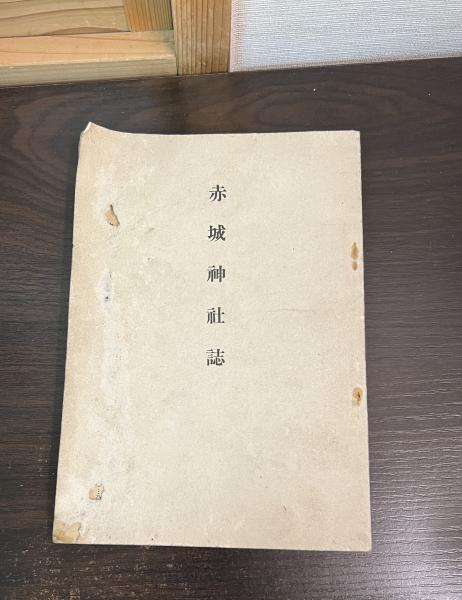 赤城神社誌